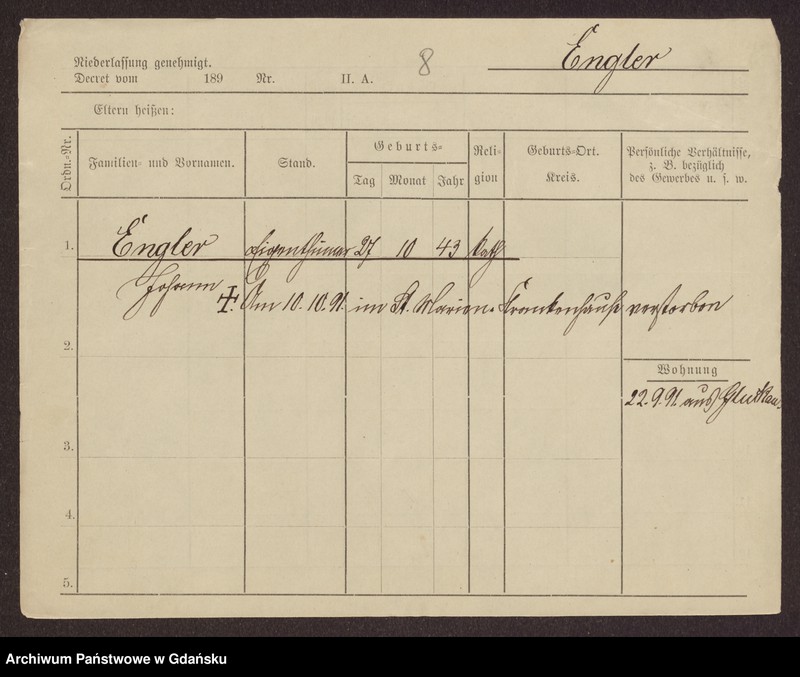 Niederlassung genehmigt.
Decret vom 189 Nr. II. A.
8
Engler
Eltern heißen:
Ordn.-Nr.
Familien- und Vornamen.
Stand.
Geburts-
Tag Monat Jahr
Reli-
gion
Geburts-Ort.
Kreis.
Persönliche Verhältnisse,
z. B. bezüglich
des Gewerbes u. s. w.
1. Engler Eigenthümer 27 10 43 kath
Johann
†. Am 10.10.91. im St. Marien-Krankenhause verstorben
2.
Wohnung
22.9.91. aus Glettkau.
3.
4.
5.
Archiwum Państwowe w Gdańsku